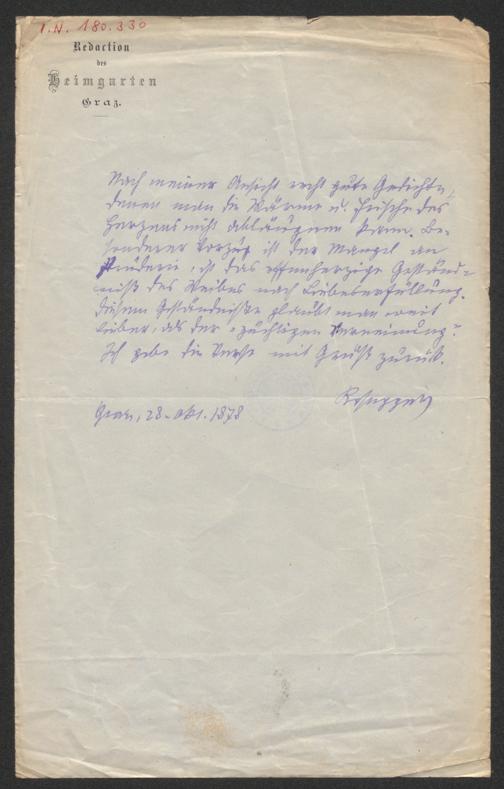 I.N. 180.330
Redaction
des
Heimgarten
Graz.
Nach meiner Ansicht recht gute Gedichte,
denen man die Wärme u. Frische des
Herzens nicht abläugnen kann. Be-
sonderer Vorzug ist der Mangel an
Prüderie, ist das offenherzige Geständ-
niß des Weibes nach Liebeserfüllung.
Diesem Geständnisse glaubt man weit
lieber, als der „züchtigen Verneinung".
Ich gebe die Verse mit Gruß zurück.
Rosegger
Graz, 28. Okt. 1878